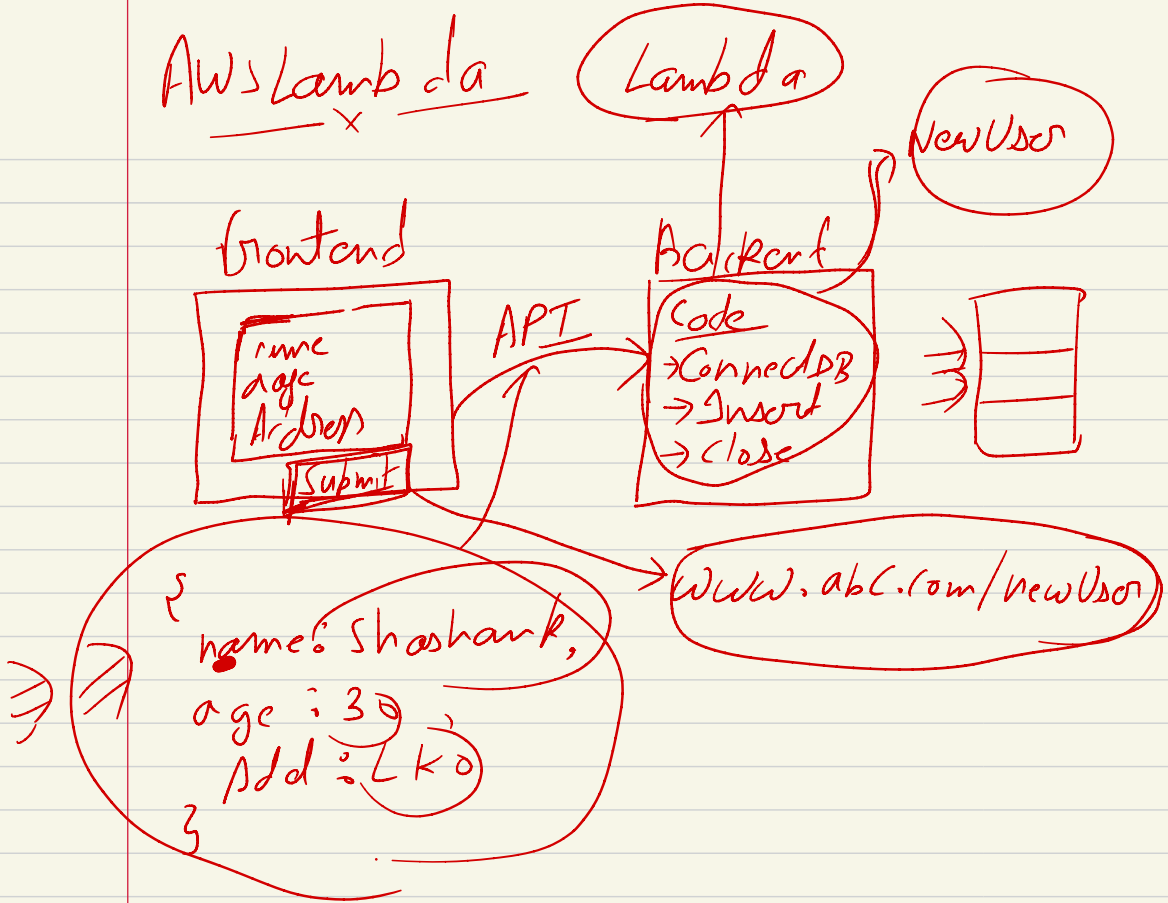 AWS Lambda
Lambda
New User
frontend
Backend
API
name
age
Address
Submit
Code
→ Connect DB
→ Insert
→ Close
www.abc.com/newUser
{
name: Shashank,
age : 30
Add : LKO
}